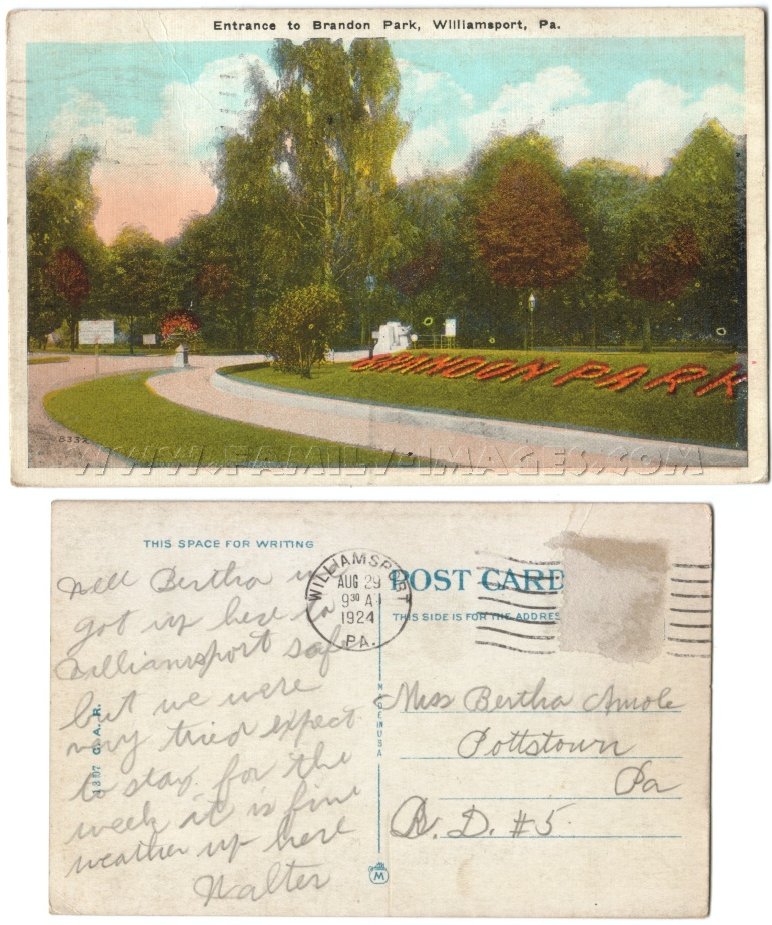 Entrance to Brandon Park, Williamsport, Pa.
BRANDON PARK
8332
WWW.FAMILY-IMAGES.COM
THIS SPACE FOR WRITING
Well Bertha we
got up here to
Williamsport safe
but we were
very tried expect
to stay for the
week it is fine
weather up here
Walter
G. A. R.
MADE IN USA
M
WILLIAMSPORT
AUG 29
9 30 A
1924
PA.
POST CARD
THIS SIDE IS FOR THE ADDRES
Miss Bertha Amole
Pottstown
Pa
R. D. #5